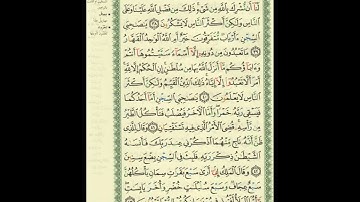 لَنَآ أَن نُّشْرِكَ بِٱللَّهِ مِن شَىْءٍ ذَٰلِكَ مِن فَضْلِ ٱللَّهِ عَلَيْنَا وَعَلَى
ٱلنَّاسِ وَلَٰكِنَّ أَكْثَرَ ٱلنَّاسِ لَا يَشْكُرُونَ ٣٨ يَٰصَٰحِبَىِ
ٱلسِّجْنِ ءَأَرْبَابٌ مُّتَفَرِّقُونَ خَيْرٌ أَمِ ٱللَّهُ ٱلْوَٰحِدُ ٱلْقَهَّارُ
٣٩ مَا تَعْبُدُونَ مِن دُونِهِۦٓ إِلَّآ أَسْمَآءً سَمَّيْتُمُوهَآ أَنتُمْ
وَءَابَآؤُكُم مَّآ أَنزَلَ ٱللَّهُ بِهَا مِن سُلْطَٰنٍ إِنِ ٱلْحُكْمُ إِلَّا لِلَّهِ
أَمَرَ أَلَّا تَعْبُدُوٓا۟ إِلَّآ إِيَّاهُ ذَٰلِكَ ٱلدِّينُ ٱلْقَيِّمُ وَلَٰكِنَّ أَكْثَرَ
ٱلنَّاسِ لَا يَعْلَمُونَ ٤٠ يَٰصَٰحِبَىِ ٱلسِّجْنِ أَمَّآ أَحَدُكُمَا
فَيَسْقِى رَبَّهُۥ خَمْرًا وَأَمَّا ٱلْءَاخَرُ فَيُصْلَبُ فَتَأْكُلُ ٱلطَّيْرُ
مِن رَّأْسِهِۦ قُضِىَ ٱلْأَمْرُ ٱلَّذِى فِيهِ تَسْتَفْتِيَانِ ٤١ وَقَالَ لِلَّذِى
ظَنَّ أَنَّهُۥ نَاجٍ مِّنْهُمَا ٱذْكُرْنِى عِندَ رَبِّكَ فَأَنسَىٰهُ
ٱلشَّيْطَٰنُ ذِكْرَ رَبِّهِۦ فَلَبِثَ فِى ٱلسِّجْنِ بِضْعَ سِنِينَ
٤٢ وَقَالَ ٱلْمَلِكُ إِنِّىٓ أَرَىٰ سَبْعَ بَقَرَٰتٍ سِمَانٍ يَأْكُلُهُنَّ
سَبْعٌ عِجَافٌ وَسَبْعَ سُنۢبُلَٰتٍ خُضْرٍ وَأُخَرَ يَابِسَٰتٍ